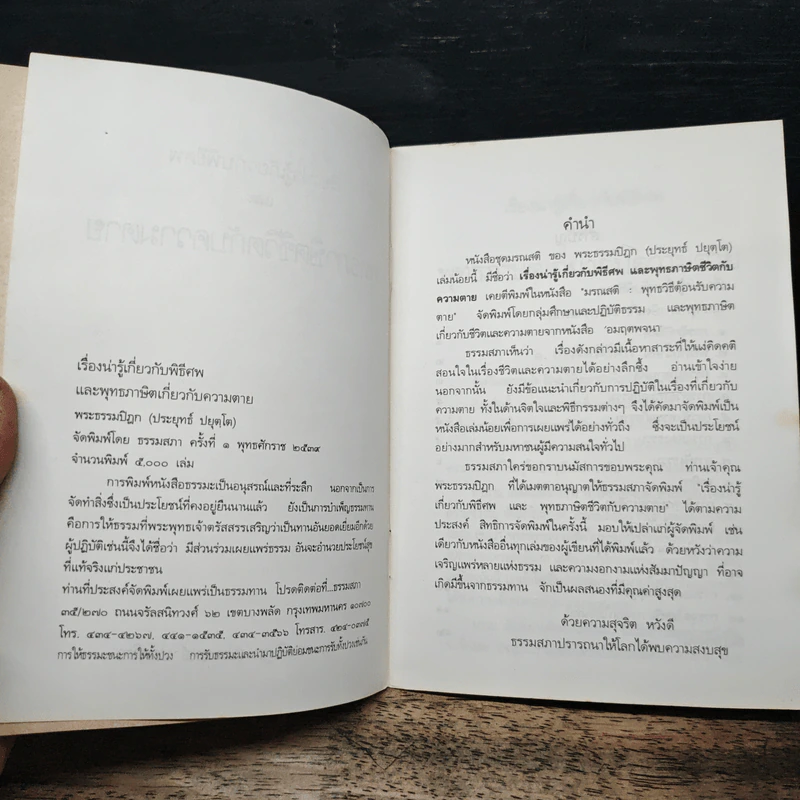 เรื่องน่ารู้เกี่ยวกับพิธีศพ
และพุทธภาษิตเกี่ยวกับความตาย
พระธรรมปิฎก (ประยุทธ์ ปยุตฺโต)
จัดพิมพ์โดย ธรรมสภา ครั้งที่ ๑ พุทธศักราช ๒๕๓๙
จำนวนพิมพ์ ๕,๐๐๐ เล่ม
การพิมพ์หนังสือธรรมะเป็นอนุสรณ์และที่ระลึก นอกจากเป็นการ
จัดทำสิ่งซึ่งเป็นประโยชน์ที่คงอยู่ยืนนานแล้ว ยังเป็นการบำเพ็ญธรรมทาน
คือการให้ธรรมที่พระพุทธเจ้าตรัสสรรเสริญว่าเป็นทานอันยอดเยี่ยมอีกด้วย
ผู้ปฏิบัติเช่นนี้จึงได้ชื่อว่า มีส่วนร่วมเผยแพร่ธรรม อันจะอำนวยประโยชน์สุข
ที่แท้จริงแก่ประชาชน
ท่านที่ประสงค์จัดพิมพ์เผยแพร่เป็นธรรมทาน โปรดติดต่อที่...ธรรมสภา
๓๕/๒๗๐ ถนนจรัลสนิทวงศ์ ๖๒ เขตบางพลัด กรุงเทพมหานคร ๑๐๗๐๐
โทร. ๔๓๔-๔๒๖๗, ๔๔๑-๑๕๓๕, ๔๓๔-๓๕๖๖ โทรสาร.
การให้ธรรมะชนะการให้ทั้งปวง การรับธรรมะและนำมาปฏิบัติย่อมชนะการรับทั้งปวงเช่นกัน
คำนำ
หนังสือชุดมรณสติ ของ พระธรรมปิฎก (ประยุทธ์ ปยุตฺโต)
เล่มน้อยนี้ มีชื่อว่า เรื่องน่ารู้เกี่ยวกับพิธีศพ และพุทธภาษิตชีวิตกับ
ความตาย เคยตีพิมพ์ในหนังสือ "มรณสติ : พุทธวิธีต้อนรับความ
ตาย" จัดพิมพ์โดยกลุ่มศึกษาและปฏิบัติธรรม และพุทธภาษิต
เกี่ยวกับชีวิตและความตายจากหนังสือ 'อมฤตพจนา'
ธรรมสภาเห็นว่า เรื่องดังกล่าวมีเนื้อหาสาระที่ให้แง่คิดคติ
สอนใจในเรื่องชีวิตและความตายได้อย่างลึกซึ้ง อ่านเข้าใจง่าย
นอกจากนั้น ยังมีข้อแนะนำเกี่ยวกับการปฏิบัติในเรื่องที่เกี่ยวกับ
ความตาย ทั้งในด้านจิตใจและพิธีกรรมต่างๆ จึงได้คัดมาจัดพิมพ์เป็น
หนังสือเล่มน้อยเพื่อการเผยแพร่ได้อย่างทั่วถึง ซึ่งจะเป็นประโยชน์
อย่างมากสำหรับมหาชนผู้มีความสนใจทั่วไป
ธรรมสภาใคร่ขอกราบนมัสการขอบพระคุณ ท่านเจ้าคุณ
พระธรรมปิฎก ที่ได้เมตตาอนุญาตให้ธรรมสภาจัดพิมพ์ "เรื่องน่ารู้
เกี่ยวกับพิธีศพ และ พุทธภาษิตชีวิตกับความตาย" ได้ตามความ
ประสงค์ สิทธิการจัดพิมพ์ในครั้งนี้ มอบให้เปล่าแก่ผู้จัดพิมพ์ เช่น
เดียวกับหนังสืออื่นทุกเล่มของผู้เขียนที่ได้พิมพ์แล้ว ด้วยหวังว่าความ
เจริญแพร่หลายแห่งธรรม และความงอกงามแห่งสัมมาปัญญา ที่อาจ
เกิดมีขึ้นจากธรรมทาน จักเป็นผลสนองที่มีคุณค่าสูงสุด
ด้วยความสุจริต หวังดี
ธรรมสภาปรารถนาให้โลกได้พบความสงบสุข